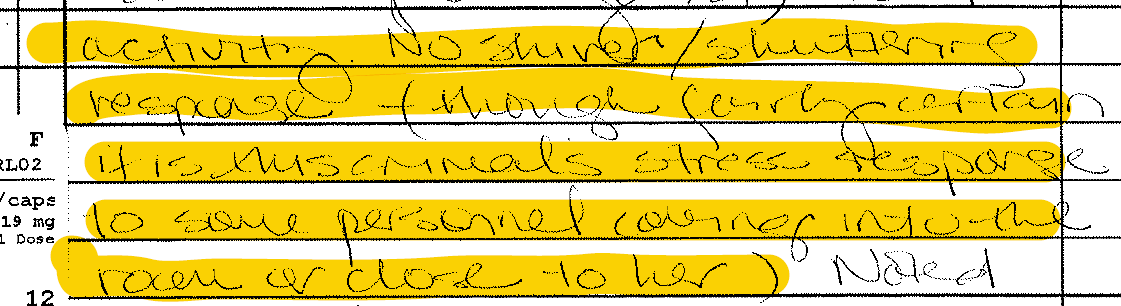 activity. No shiver/shuttering
response - (though fairly certain
F
it is this animal's stress response
RL02
/caps
to some personnel coming into the
19 mg
1 Dose
room or close to her) Noted
12